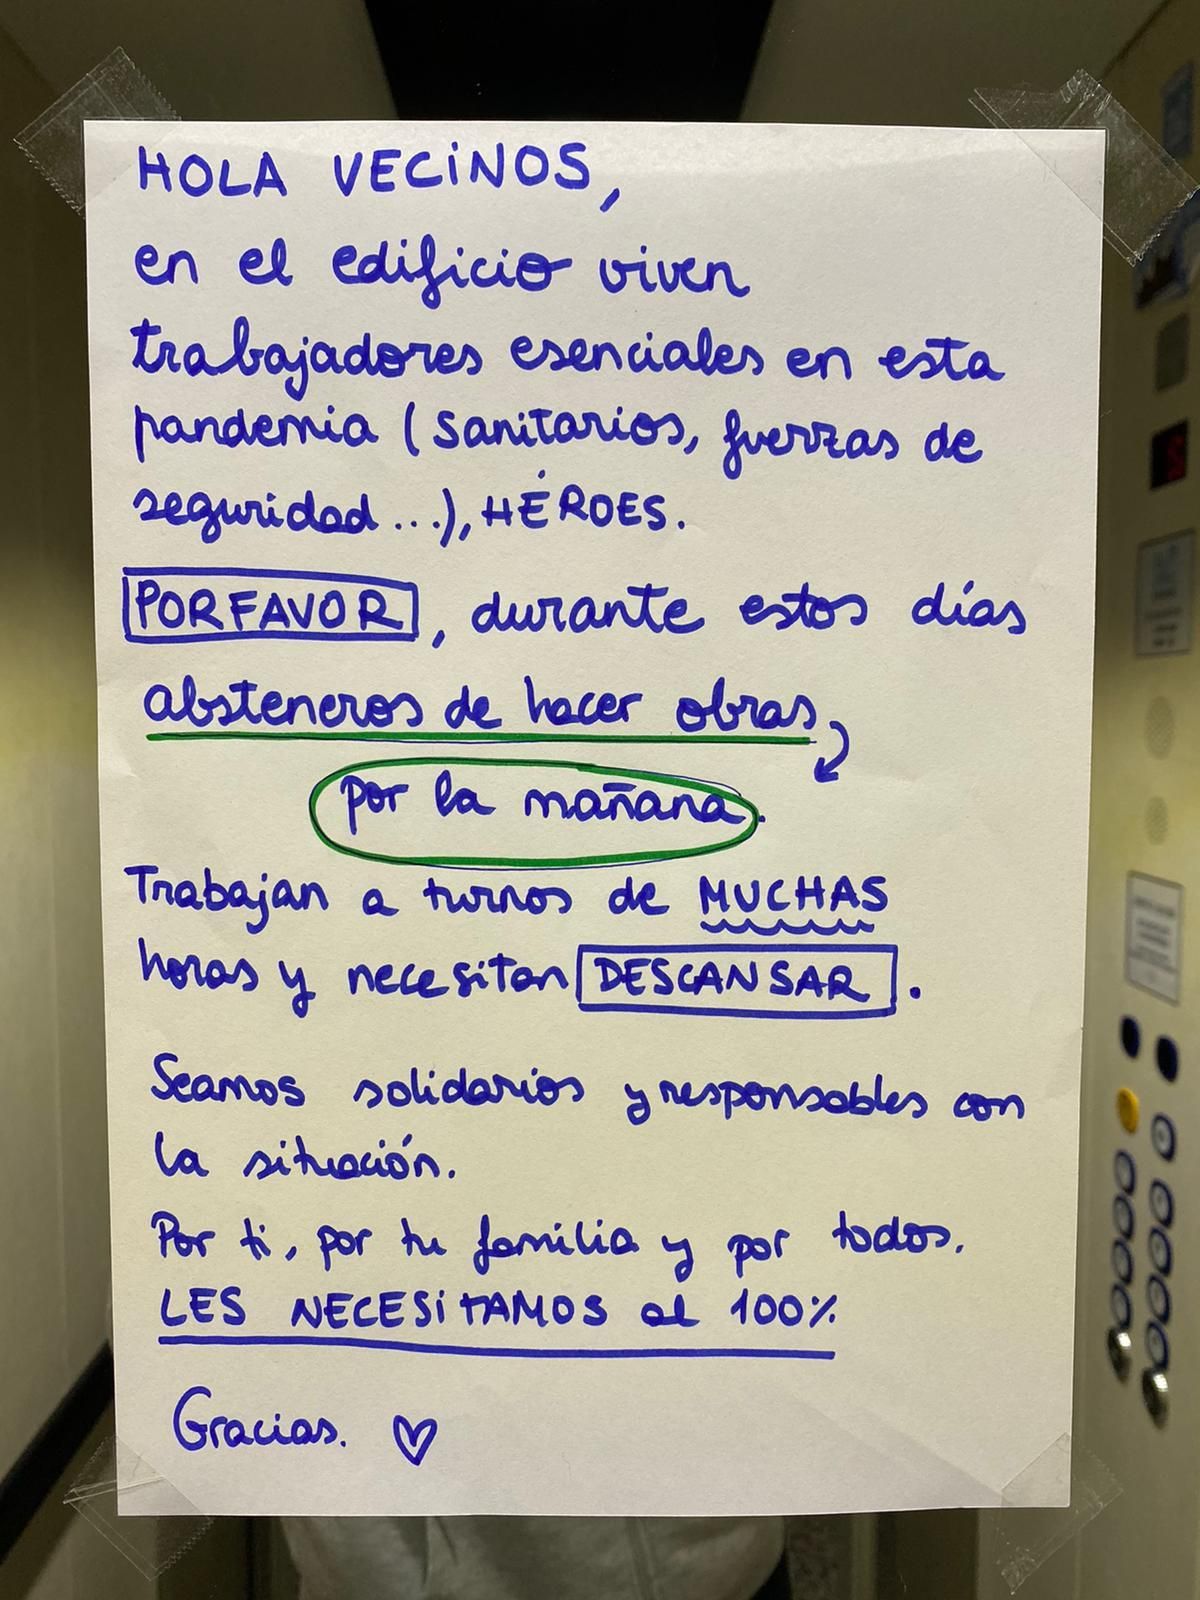 HOLA VECINOS,
en el edificio viven
trabajadores esenciales en esta
pandemia (sanitarios, fuerzas de
seguridad...), HÉROES.
POR FAVOR, durante estos días
absteneros de hacer obras
por la mañana.
Trabajan a turnos de MUCHAS
horas y necesitan DESCANSAR.
Seamos solidarios y responsables con
la situación.
Por ti, por tu familia y por todos.
LES NECESITAMOS al 100%
Gracias. ♡